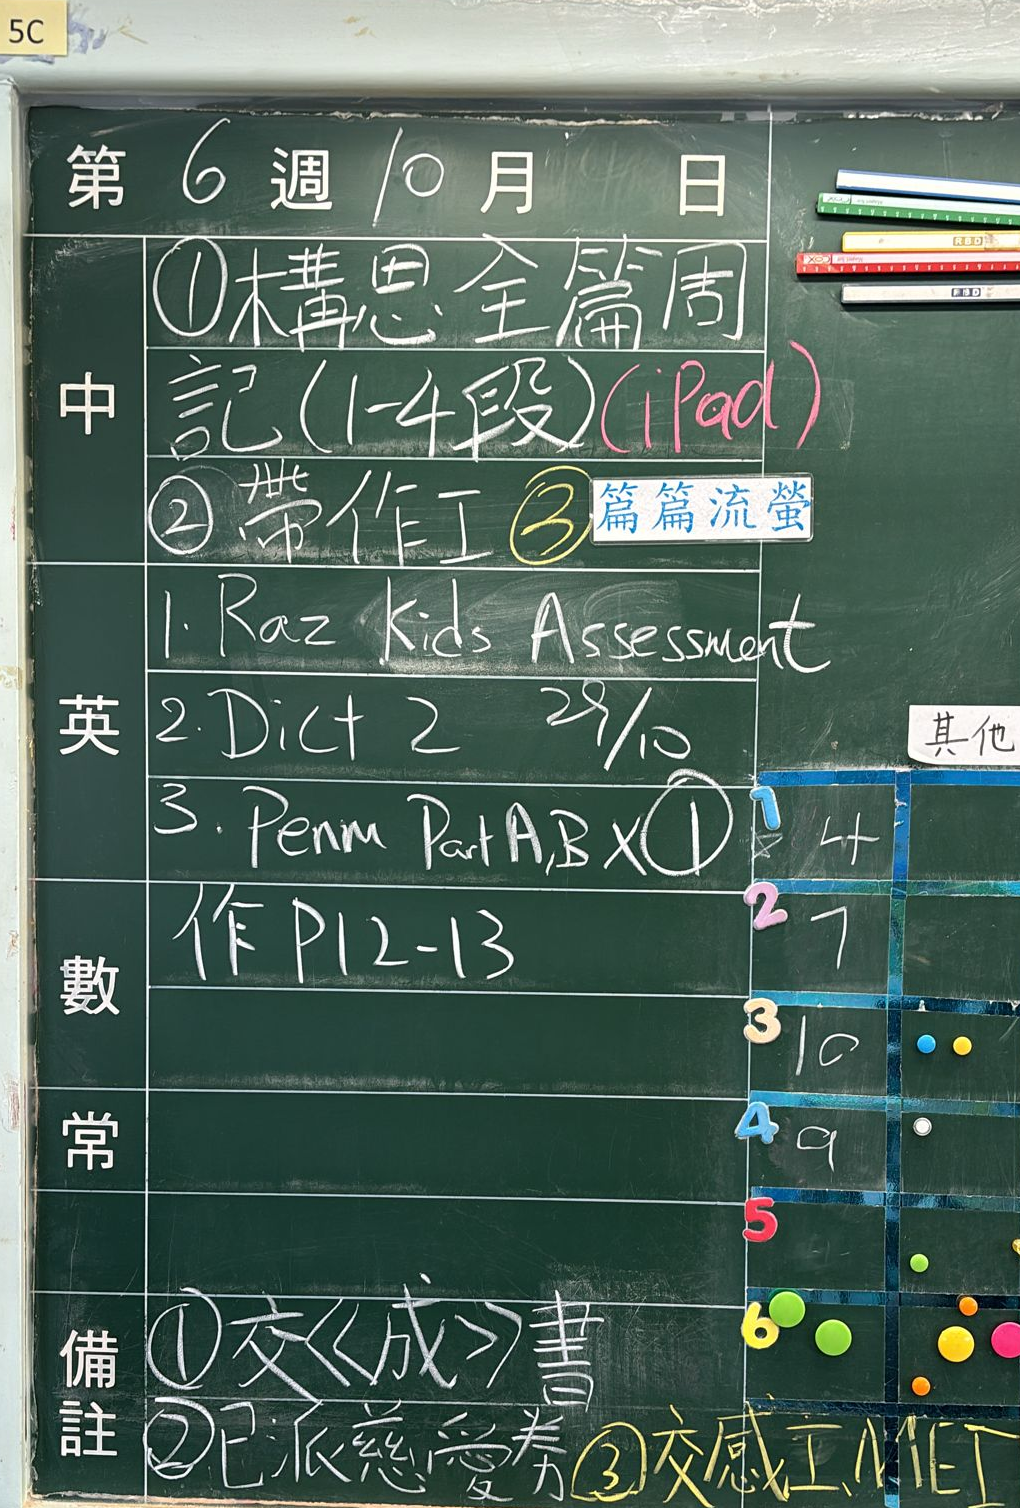 5C
第 6 週 10 月 日
中
①構思全篇周
記(1-4段)(iPad)
②帶作工 ③ 篇篇流螢
英
1. Raz Kids Assessment
2. Dict 2 29/10
3. Penm Part A,B X①
數
作 P12-13
常
備註
①交《成》書
②已派慈愛券 ③交感工、MET
其他
1 4
2 7
3 10
4 9
5
6